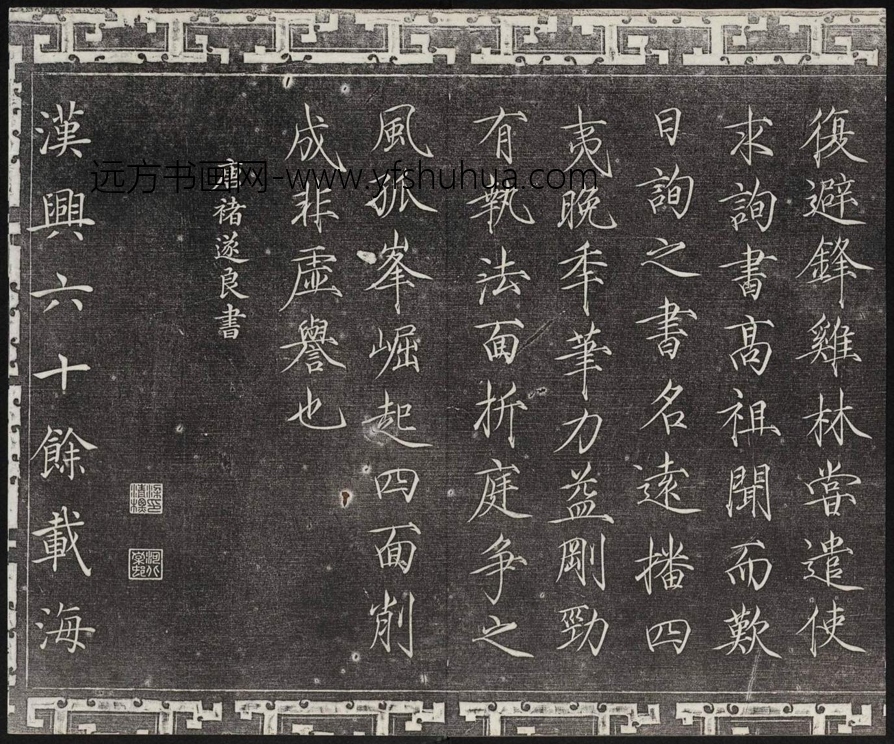 復避鋒雞林嘗遣使
求詢書高祖聞而歎
曰詢之書名遠播四
夷晚季筆力益剛勁
有執法面折庭争之
風孤峯崛起四面削
成非虛譽也
唐褚遂良書
漢興六十餘載海
远方书画网-www.yfshuhua.com